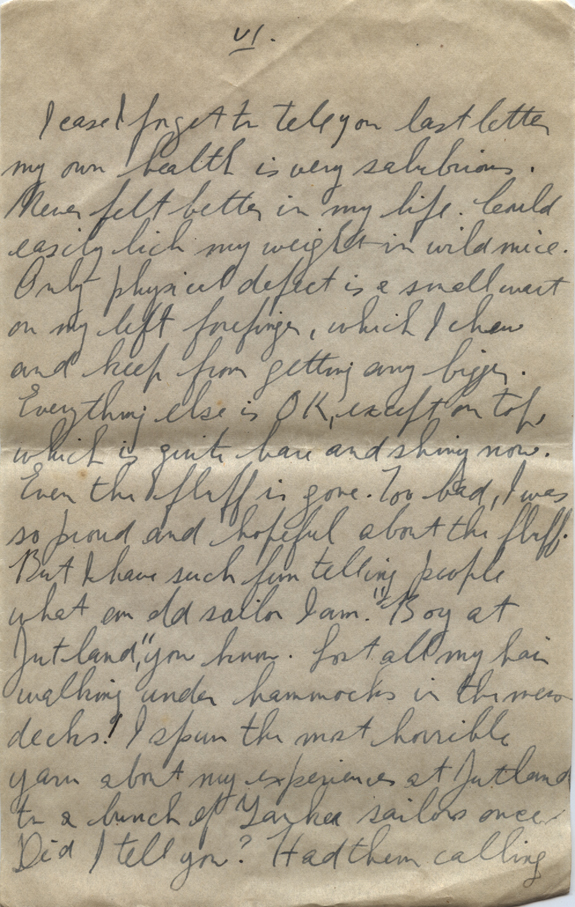 VI.
I case I forget to tell you last letter
my own health is very salubrious.
Never felt better in my life. Could
easily lick my weight in wild mice.
Only physical defect is a small wart
on my left forefinger, which I chew
and keep from getting any bigger.
Everything else is OK, except on top,
which is quite bare and shiny now.
Even the fluff is gone. Too bad, I was
so proud and hopeful about the fluff.
But I have such fun telling people
what an old sailor I am. "Boy at
Jutland," you know. Lost all my hair
walking under hammocks in the mess
decks! I spun the most horrible
yarn about my experiences at Jutland
to a bunch of Yankee sailors once.
Did I tell you? Had them calling